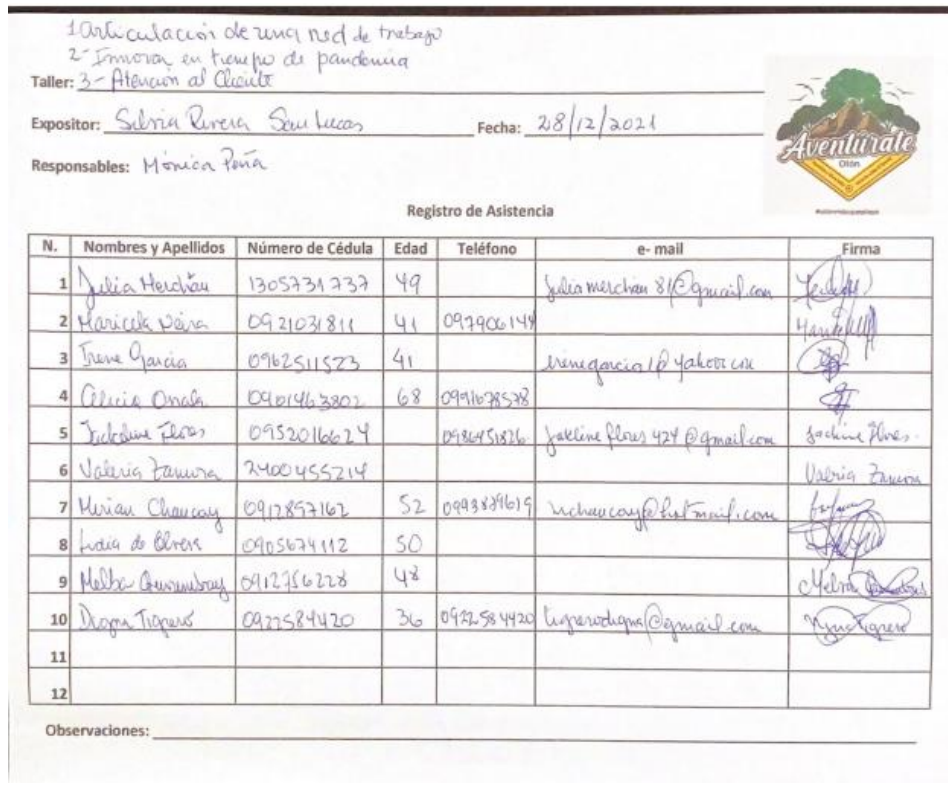 1 articulación de una red de trabajo
2- Innovar en tiempo de pandemia
Taller: 3- Atención al Cliente
Expositor: Silvia Rivera San Lucas Fecha: 28/12/2021
Responsables: Mónica Peña
Aventúrate
Olón
Registro de Asistencia
N. Nombres y Apellidos Número de Cédula Edad Teléfono e- mail Firma
1 Julia Merchán 1305731737 49 juliamerchan81@gmail.com
2 Maricela Neira 0921031811 41 097906144
3 Irene Garcia 0962511523 41
4 Alicia 0901463802 68 0991678578
5 Flores 0952016624 0986451826 jakeline flores 424@gmail.com
6 Valeria 2400455214 Valeria
7 Mirian Chancay 0912897162 52 0993839619 mchancay@hotmail.com
8 de 0905674112 50
9 Melba 0912756228 48 Melba
10 Digna Tigrero 0922584420 36 0922584420 tigrerodigna@gmail.com
11
12
Observaciones: